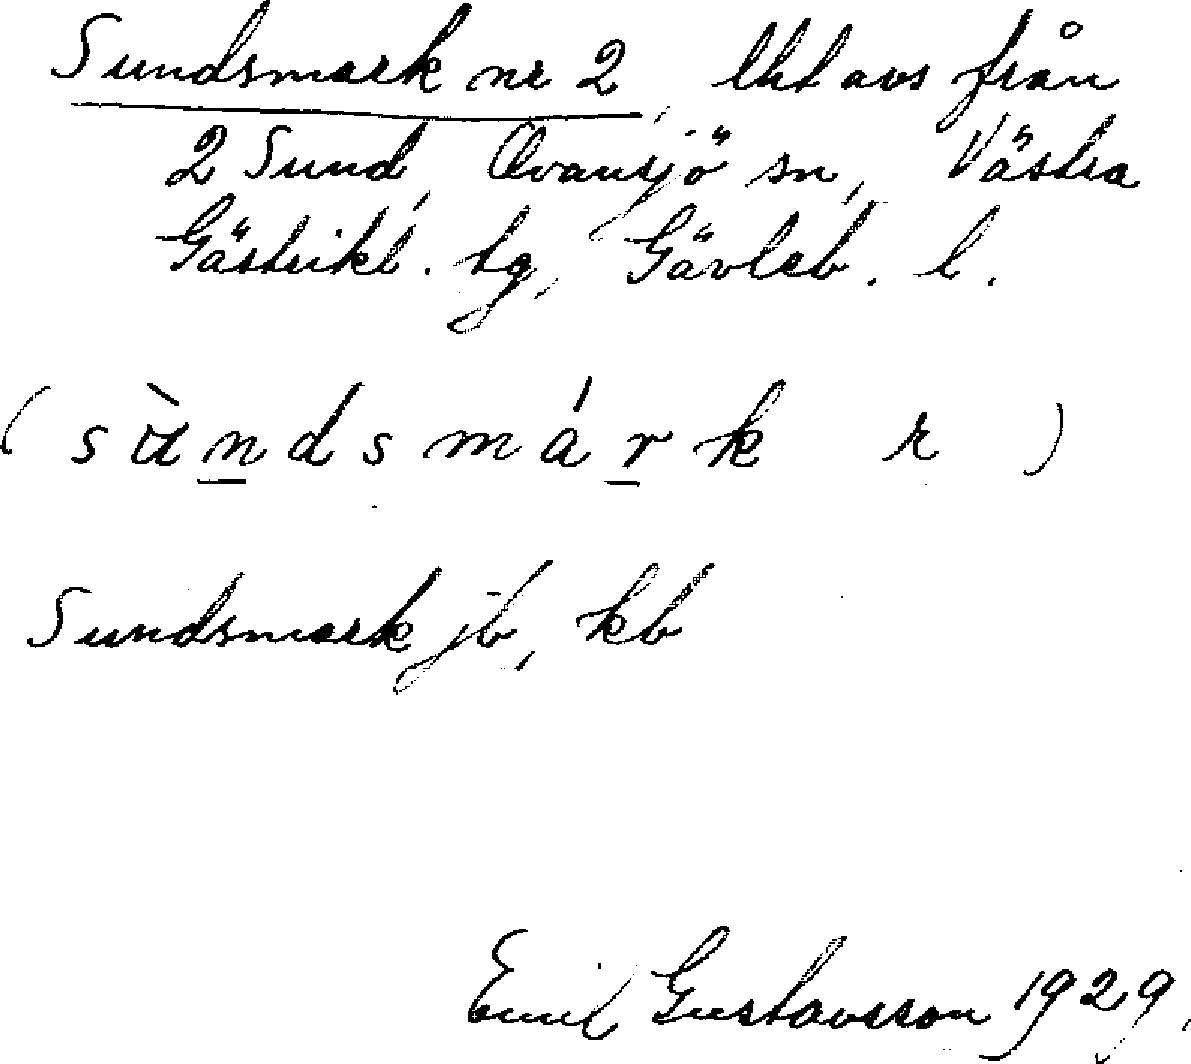 Sundsmark nr 2, lht avs från
2 Sund, Ovansjö sn, Västra
Gästrikl. tg, Gävleb. l.
(sùndsmárk r)
Sundsmark jb, kb
Emil Gustavsson 1929.